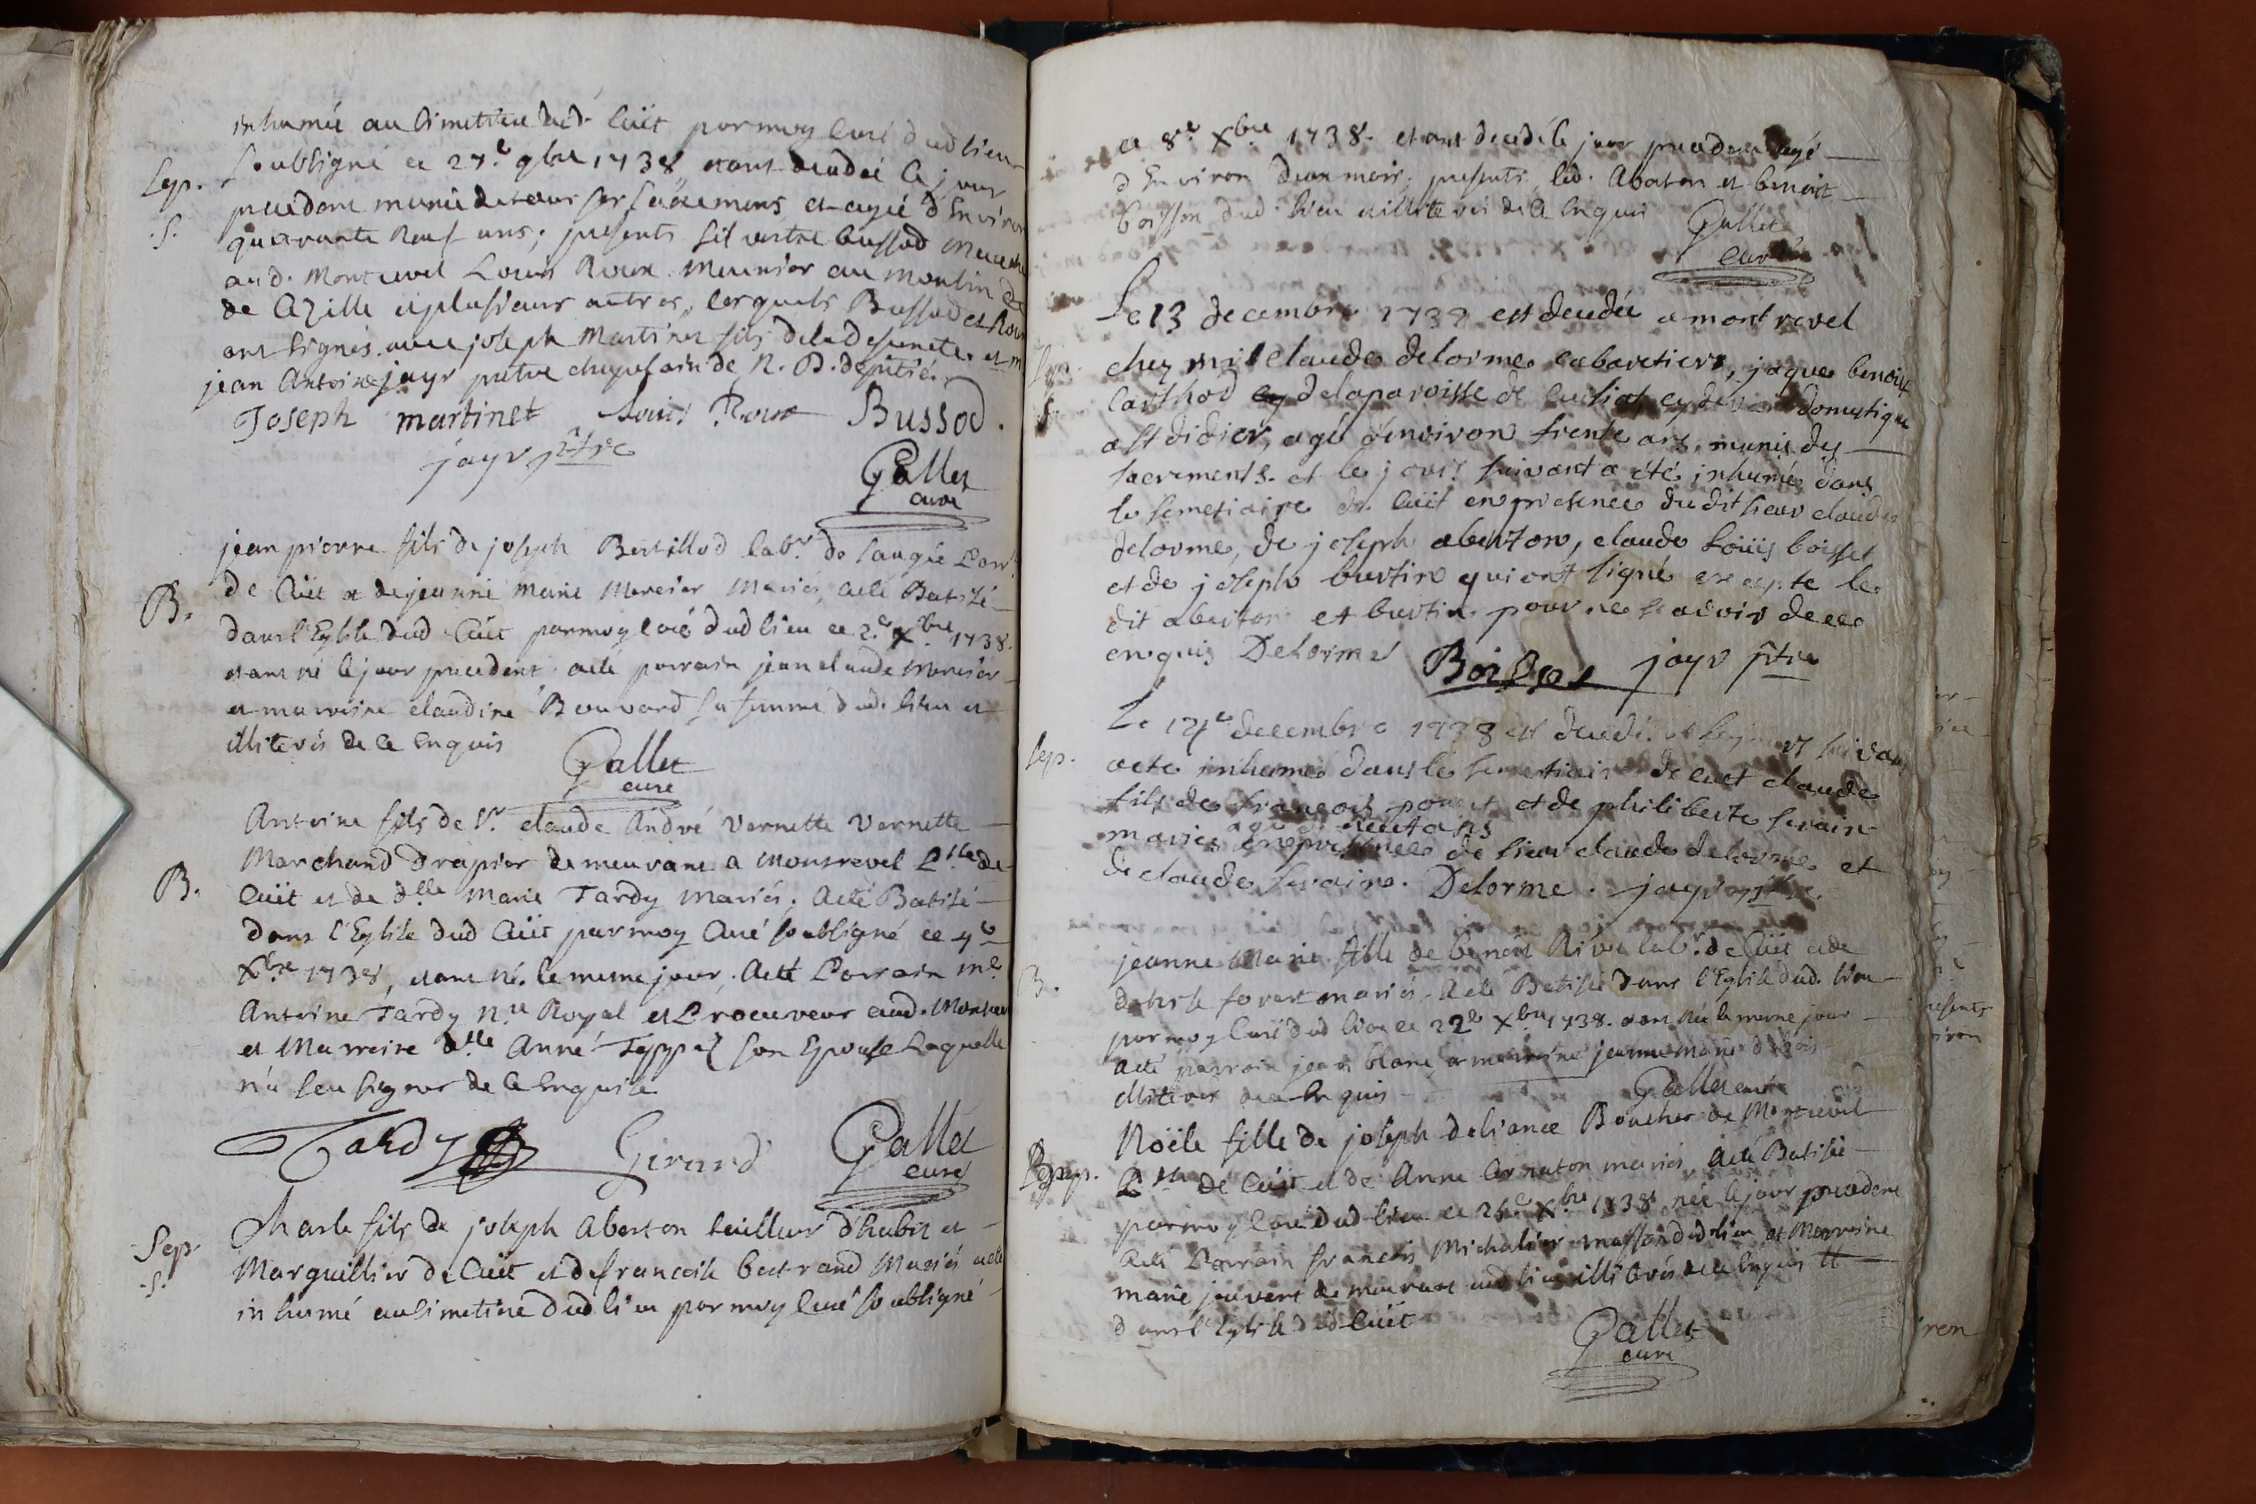 inhumée au simetiere dud. Cuët par moy curé dud lieu
Sep. soubsigné ce 27.e 9bre 1738 etant decedée le jour
.S. precedent munie de tous ses sacremens et agée d'Environ
quarante neuf ans; presents silvestre bussod
aud. Montrevel Louis Roux Meunier au moulin de
de Cézille et plusieurs autres, lesquels Bussod et Roux
ont signés avec joseph Martinet fils de la defuncte. et
jean Antoine jayr pretre chapelain de N. D. de pitié.
Joseph martinet Louis Roux Bussod.
jayr ptre
Gallet
curé
jean pierre fils de joseph Bertillod lab.r de
B. de Cuët et de jeanne Marie Mercier Mariés, a eté Batisé
dans l'Eglise dud Cuët par moy curé dud lieu ce 2.e Xbre 1738.
etant né le jour precedent a eté parrain jean claude Mercier
et marreine claudine Bouvard sa femme dud. lieu et
illiterés de ce enquis
Gallet
curé
Antoine fils de Sr. claude André Vernette Vernette
Marchand drapier demeurant a Montrevel Psse de
B. Cuët et de dlle Marie Tardy Mariés. a eté Batisé
dans l'Eglise dud Cuët par moy Curé soubsigné ce 4e
Xbre 1738, etant né le meme jour. a eté Parrain me.
Antoine Tardy n.re Royal et Procureur aud. Montrevel
et Marreine dlle Anne son Epouse Laquelle
n'a sçeu signer de ce enquise
Tardy Girard Gallet
curé
Sep. Charle fils de joseph Aberton tailleur d'habit et
.S. Marguillier de Cuët et de françoise bertrand Mariés a eté
inhumé au simetire dud lieu par moy curé soubsigné
ce 8.e Xbre 1738. etant decedé le jour precedent agé
d'Environ deux mois, presents led. Abaton et benoit
boisson dud. lieu illiterés de ce enquis Gallet
curé
Le 13 decembre 1738 est decedé a montrevel
Sep. chez mr claude delorme cabaretiers, jaque benoist
S. Carthod de la paroisse de domestique
a St didier, agé d'environ trente ans, munis des
sacrements. et le jour suivant a été inhumé dans
le semetiaire de Cuët en presence du dit sieur claude
delorme, de joseph aberton, claude Loüis boisset
et de joseph burtin qui ont signé excepte le
dit aberton et burtin pour ne sçavoir de ce
enquis Delorme Boisset jayr ptre
Le decembre 1738 est decedé et le jour suivant
Sep. a eté inhumé dans le semetiaire de Cuet claude
fils de françois et de philiberte
agé de neuf ans
mariés en presence de sieur claude delorme et
de claude Delorme. jayr ptre.
jeanne Marie fille de benoit Rive lab.r de Cuët et de
B. forest mariés. a eté Batisée dans l'Eglise dud. lieu
par moy Curé dud lieu ce 22e Xbre 1738. etant née le meme jour
a eté parrain jean blanc et marreine jeanne marie
illiterés de ce enquis Gallet curé
Noële fille de joseph deliance Boucher de Montrevel
Bap. Psse de Cuët et de Anne mariés, a eté Batisée
par moy Curé dud lieu ce 26e Xbre 1738 née le jour precedent
a eté Parrain francois Michalier masson dud lieu et Marreine
marie jouvent demeurant aud lieu illiterés de ce Enquis
dans l'Eglise dud Cuët
Gallet
curé